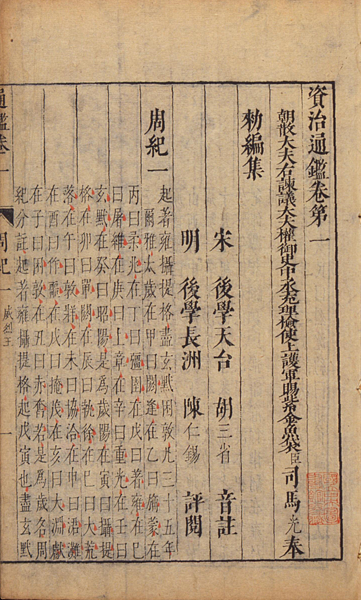 資治通鑑卷第一
朝散大夫右諫議大夫權御史中丞充理檢使上護軍賜紫金魚袋臣司馬光奉
勑編集
宋後學天台胡三省音註
明後學長洲陳仁錫評閱
周紀一
起著雍攝提格盡玄黓困敦凡三十五年
爾雅太歲在甲曰閼逢在乙曰旃蒙在
丙曰柔兆在丁曰彊圉在戊曰著雍在己
曰屠維在庚曰上章在辛曰重光在壬曰
玄黓在癸曰昭陽是為歲陽在寅曰攝提
格在卯曰單閼在辰曰執徐在巳曰大荒
落在午曰敦牂在未曰協洽在申曰涒灘
在酉曰作噩在戌曰掩茂在亥曰大淵獻
在子曰困敦在丑曰赤奮若是為歲名周
紀分註起著雍攝提格起戊寅也盡玄黓
通鑑卷一
周紀一
威烈王
一